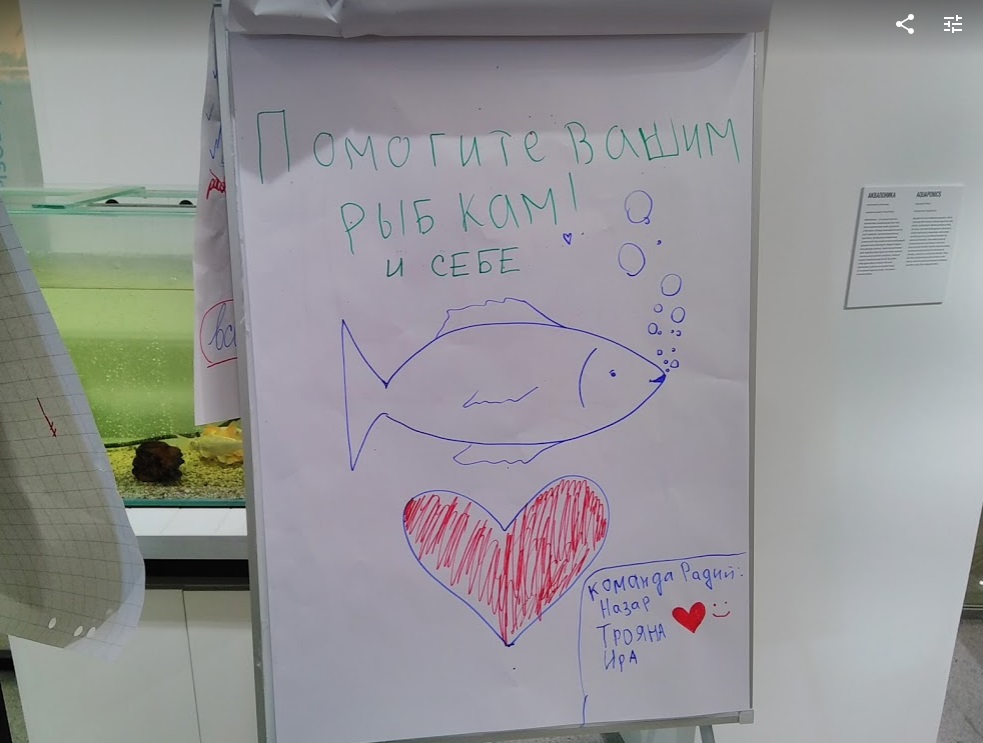 Помогите вашим
рыбкам!
и СЕБЕ
команда Радий:
Назар
Трояна
Ира
АКВАПОНИКА
AQUAPONICS